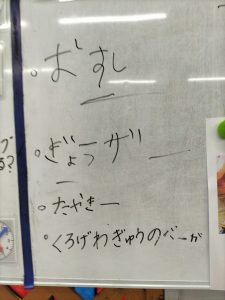 。おすし
。ぎょうザ
。たやきー
。くろげわぎゅうのバーガ